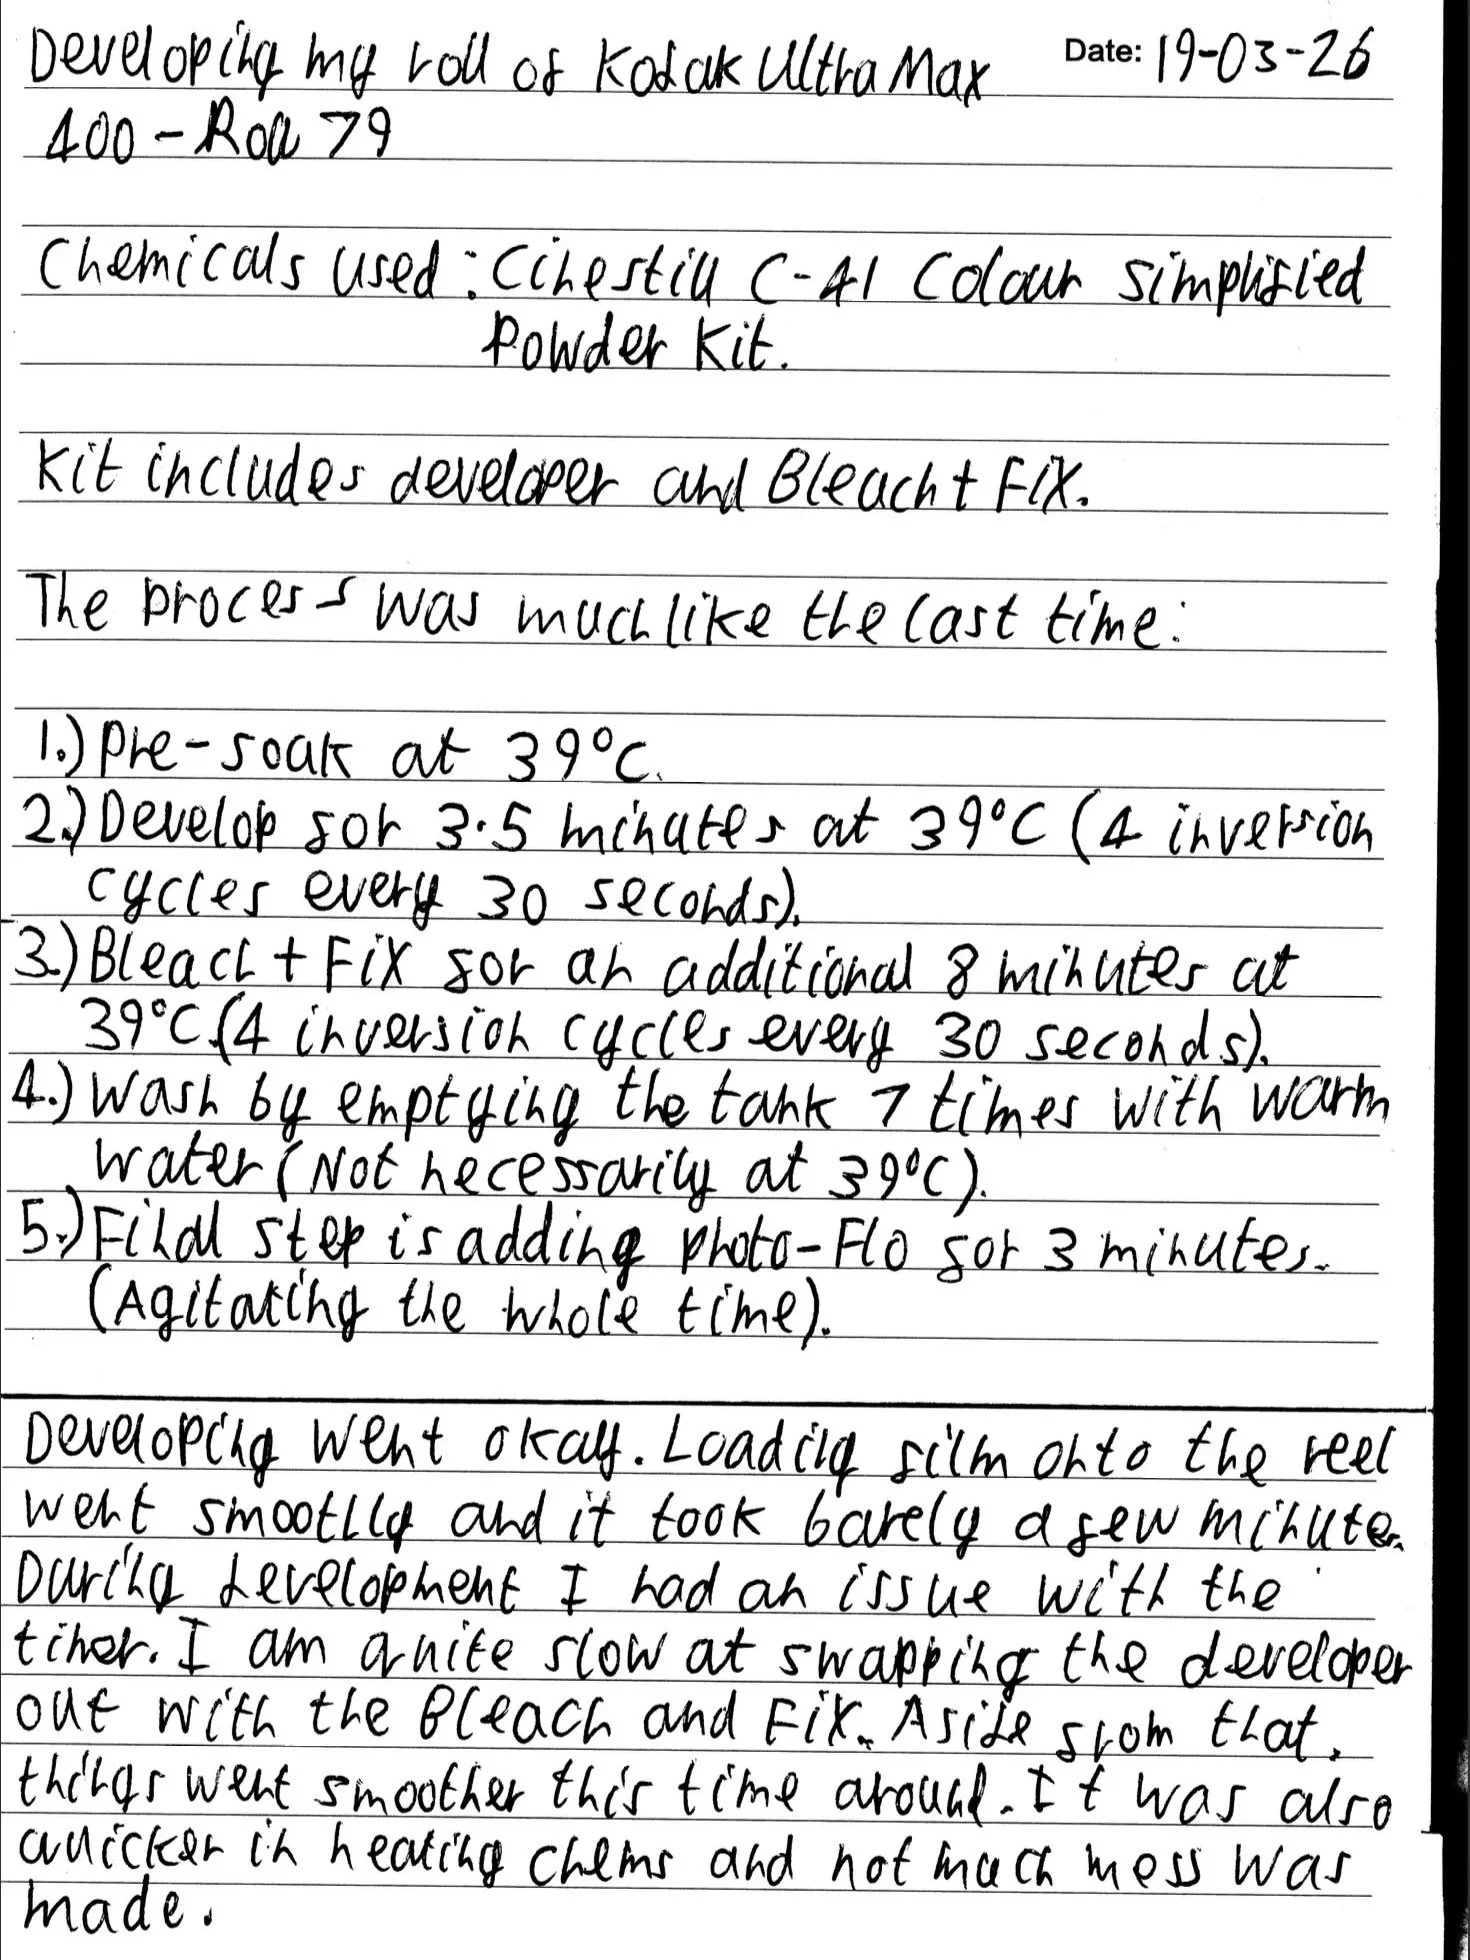 Developing my roll of Kodak UltraMax
Date: 19-03-26
400 - Roll 79
Chemicals used: Cinestill C-41 Colour Simplified
Powder Kit.
Kit includes developer and Bleach + Fix.
The process was much like the last time:
1.) Pre-soak at 39°C.
2.) Develop for 3.5 minutes at 39°C (4 inversion
cycles every 30 seconds).
3.) Bleach + Fix for an additional 8 minutes at
39°C (4 inversion cycles every 30 seconds).
4.) Wash by emptying the tank 7 times with warm
water (Not necessarily at 39°C).
5.) Final step is adding Photo-Flo for 3 minutes.
(Agitating the whole time).
Developing went okay. Loading film onto the reel
went smoothly and it took barely a few minutes.
During development I had an issue with the
timer. I am quite slow at swapping the developer
out with the Bleach and Fix. Aside from that,
things went smoother this time around. It was also
quicker in heating chems and not much mess was
made.